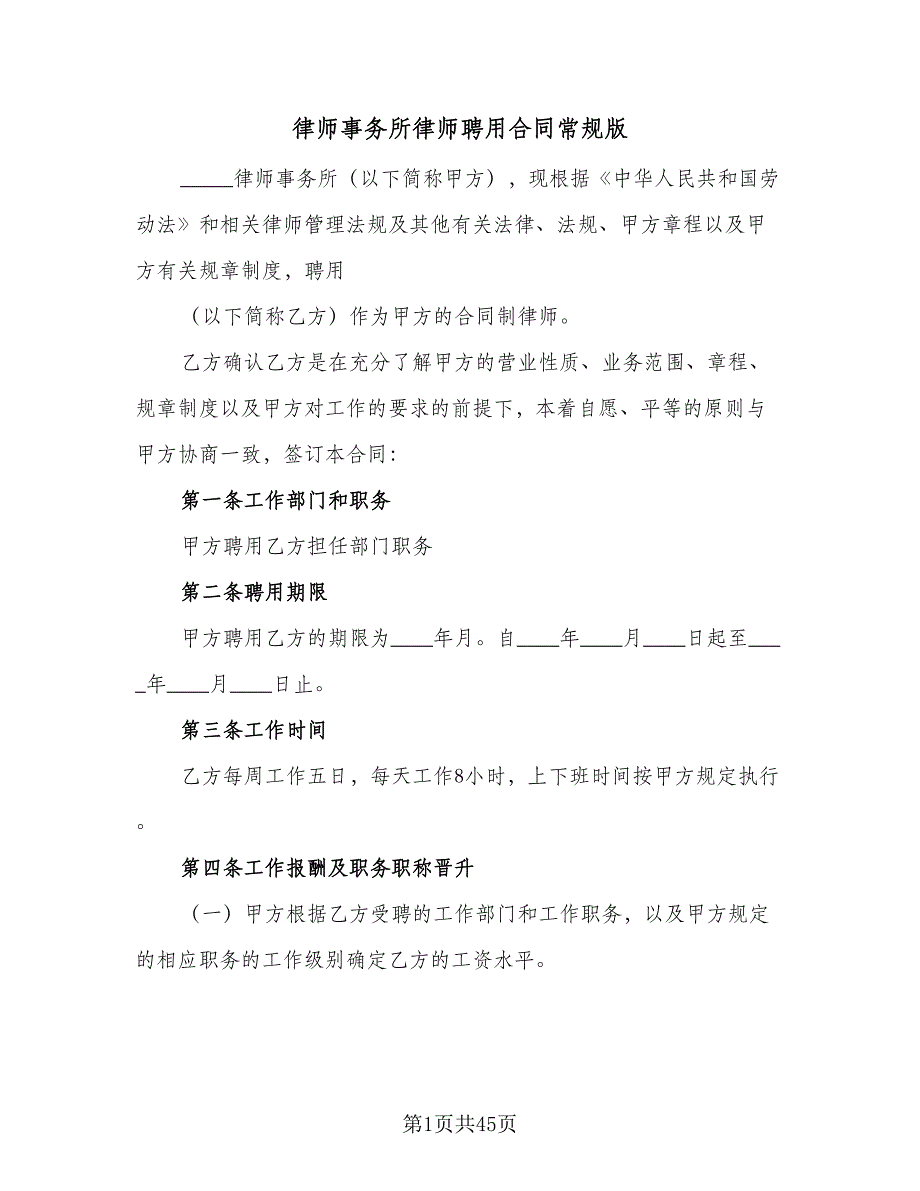 律师事务所律师聘用合同常规版
_____律师事务所（以下简称甲方），现根据《中华人民共和国劳
动法》和相关律师管理法规及其他有关法律、法规、甲方章程以及甲
方有关规章制度，聘用
（以下简称乙方）作为甲方的合同制律师。
乙方确认乙方是在充分了解甲方的营业性质、业务范围、章程、
规章制度以及甲方对工作的要求的前提下，本着自愿、平等的原则与
甲方协商一致，签订本合同：
第一条工作部门和职务
甲方聘用乙方担任部门职务
第二条聘用期限
甲方聘用乙方的期限为____年月。自____年____月____日起至___
_年____月____日止。
第三条工作时间
乙方每周工作五日，每天工作8小时，上下班时间按甲方规定执行
。
第四条工作报酬及职务职称晋升
（一）甲方根据乙方受聘的工作部门和工作职务，以及甲方规定
的相应职务的工作级别确定乙方的工资水平。
第1页共45页